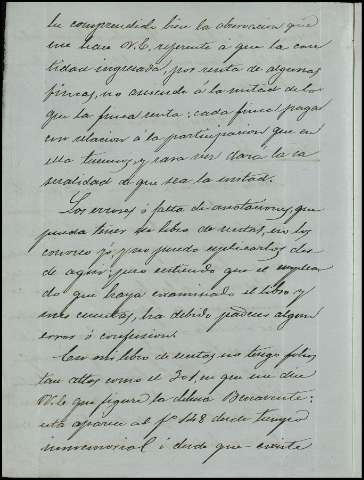 he comprendido bien la observacion que
me hace V.E. referente á que la can
tidad ingresada, por renta de algunas
fincas, no asciende á la mitad de lo
que la finca renta: cada finca paga
con relacion á la participacion que en
ella tienen, y rara vez dara la ca
sualidad de que sea la mitad.
Los errores ó falta de anotaciones, que
pueda tener su libro de rentas, no los
conozco yo, y no puedo esplicarlos des
de aqui: pero entiendo que el emplea
do que haya examinado el libro y
mis cuentas, ha debido padecer algun
error ó confusion.
En mi libro de rentas no tengo folios
tan altos como el 301, en que me dice
que figura la dehesa Benavente:
esta aparece al fº 148 desde tiempo
inmemorial i desde que existe